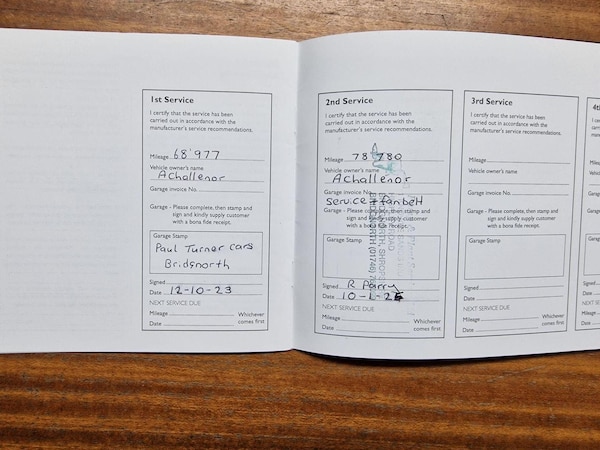 1st Service
I certify that the service has been
carried out in accordance with the
manufacturer's service recommendations.
Mileage 68'977
Vehicle owner's name
A Challenor
Garage invoice No.
Garage - Please complete, then stamp and
sign and kindly supply customer
with a bona fide receipt.
Garage Stamp
Paul Turner cars
Bridgnorth
Signed
Date 12-10-23
NEXT SERVICE DUE
Mileage Whichever
Date comes first
2nd Service
I certify that the service has been
carried out in accordance with the
manufacturer's service recommendations.
Mileage 78 780
Vehicle owner's name
A Challenor
Garage invoice No.
service + fanbelt
Garage - Please complete, then stamp and
sign and kindly supply customer
with a bona fide receipt.
Garage Stamp
ROAD
BRIDGNORTH, SHROPS
BRIDGNORTH (01746)
Signed R Parry
Date
NEXT SERVICE DUE
Mileage Whichever
Date comes first
3rd Service
I certify that the service has been
carried out in accordance with the
manufacturer's service recommendations.
Mileage
Vehicle owner's name
Garage invoice No.
Garage - Please complete, then stamp and
sign and kindly supply customer
with a bona fide receipt.
Garage Stamp
Signed
Date
NEXT SERVICE DUE
Mileage Whichever
Date comes first
I certify
carried
manufa
Mileage
Vehicle
Garage
Garage
Signed
Date
NEXT
Mileage
Date